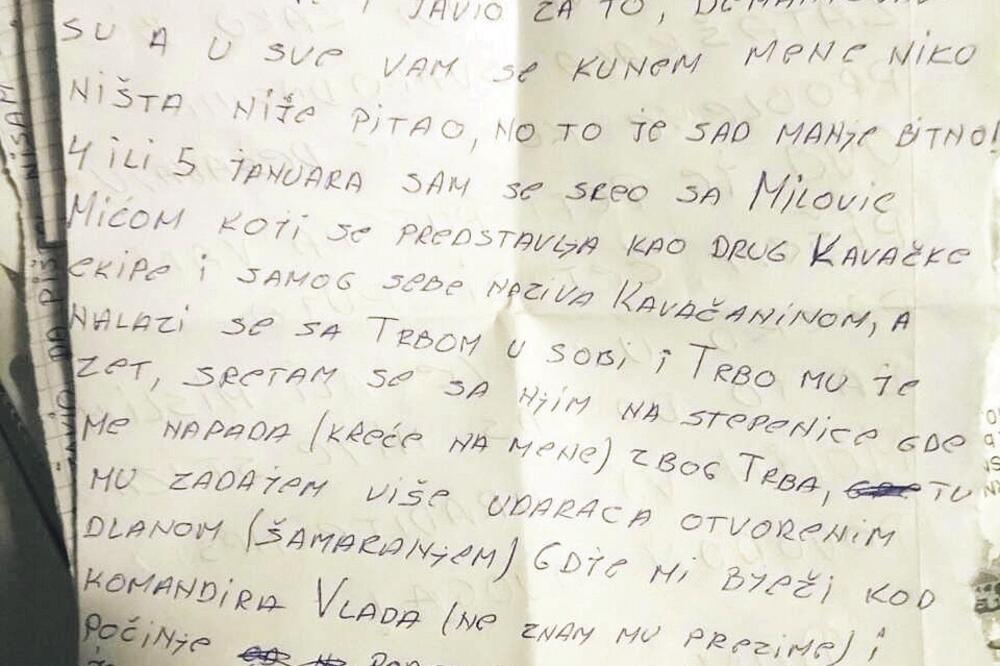 I JAVIO ZA TO,
SU A U SVE VAM SE KUNEM MENE NIKO
NIŠTA NIJE PITAO, NO TO JE SAD MANJE BITNO!
4 ILI 5 JANUARA SAM SE SREO SA MILOVIĆ
MIĆOM KOJI SE PREDSTAVLJA KAO DRUG KAVAČKE
EKIPE I SAMOG SEBE NAZIVA KAVAČANINOM, A
NALAZI SE SA TRBOM U SOBI I TRBO MU JE
ZET, SRETAM SE SA NJIM NA STEPENICE GDE
ME NAPADA (KREĆE NA MENE) ZBOG TRBA, TU
MU ZADAJEM VIŠE UDARACA OTVORENIM
DLANOM (ŠAMARANJEM) GDJE MI BJEŽI KOD
KOMANDIRA VLADA (NE ZNAM MU PREZIME) I
POČINJE
NISAM